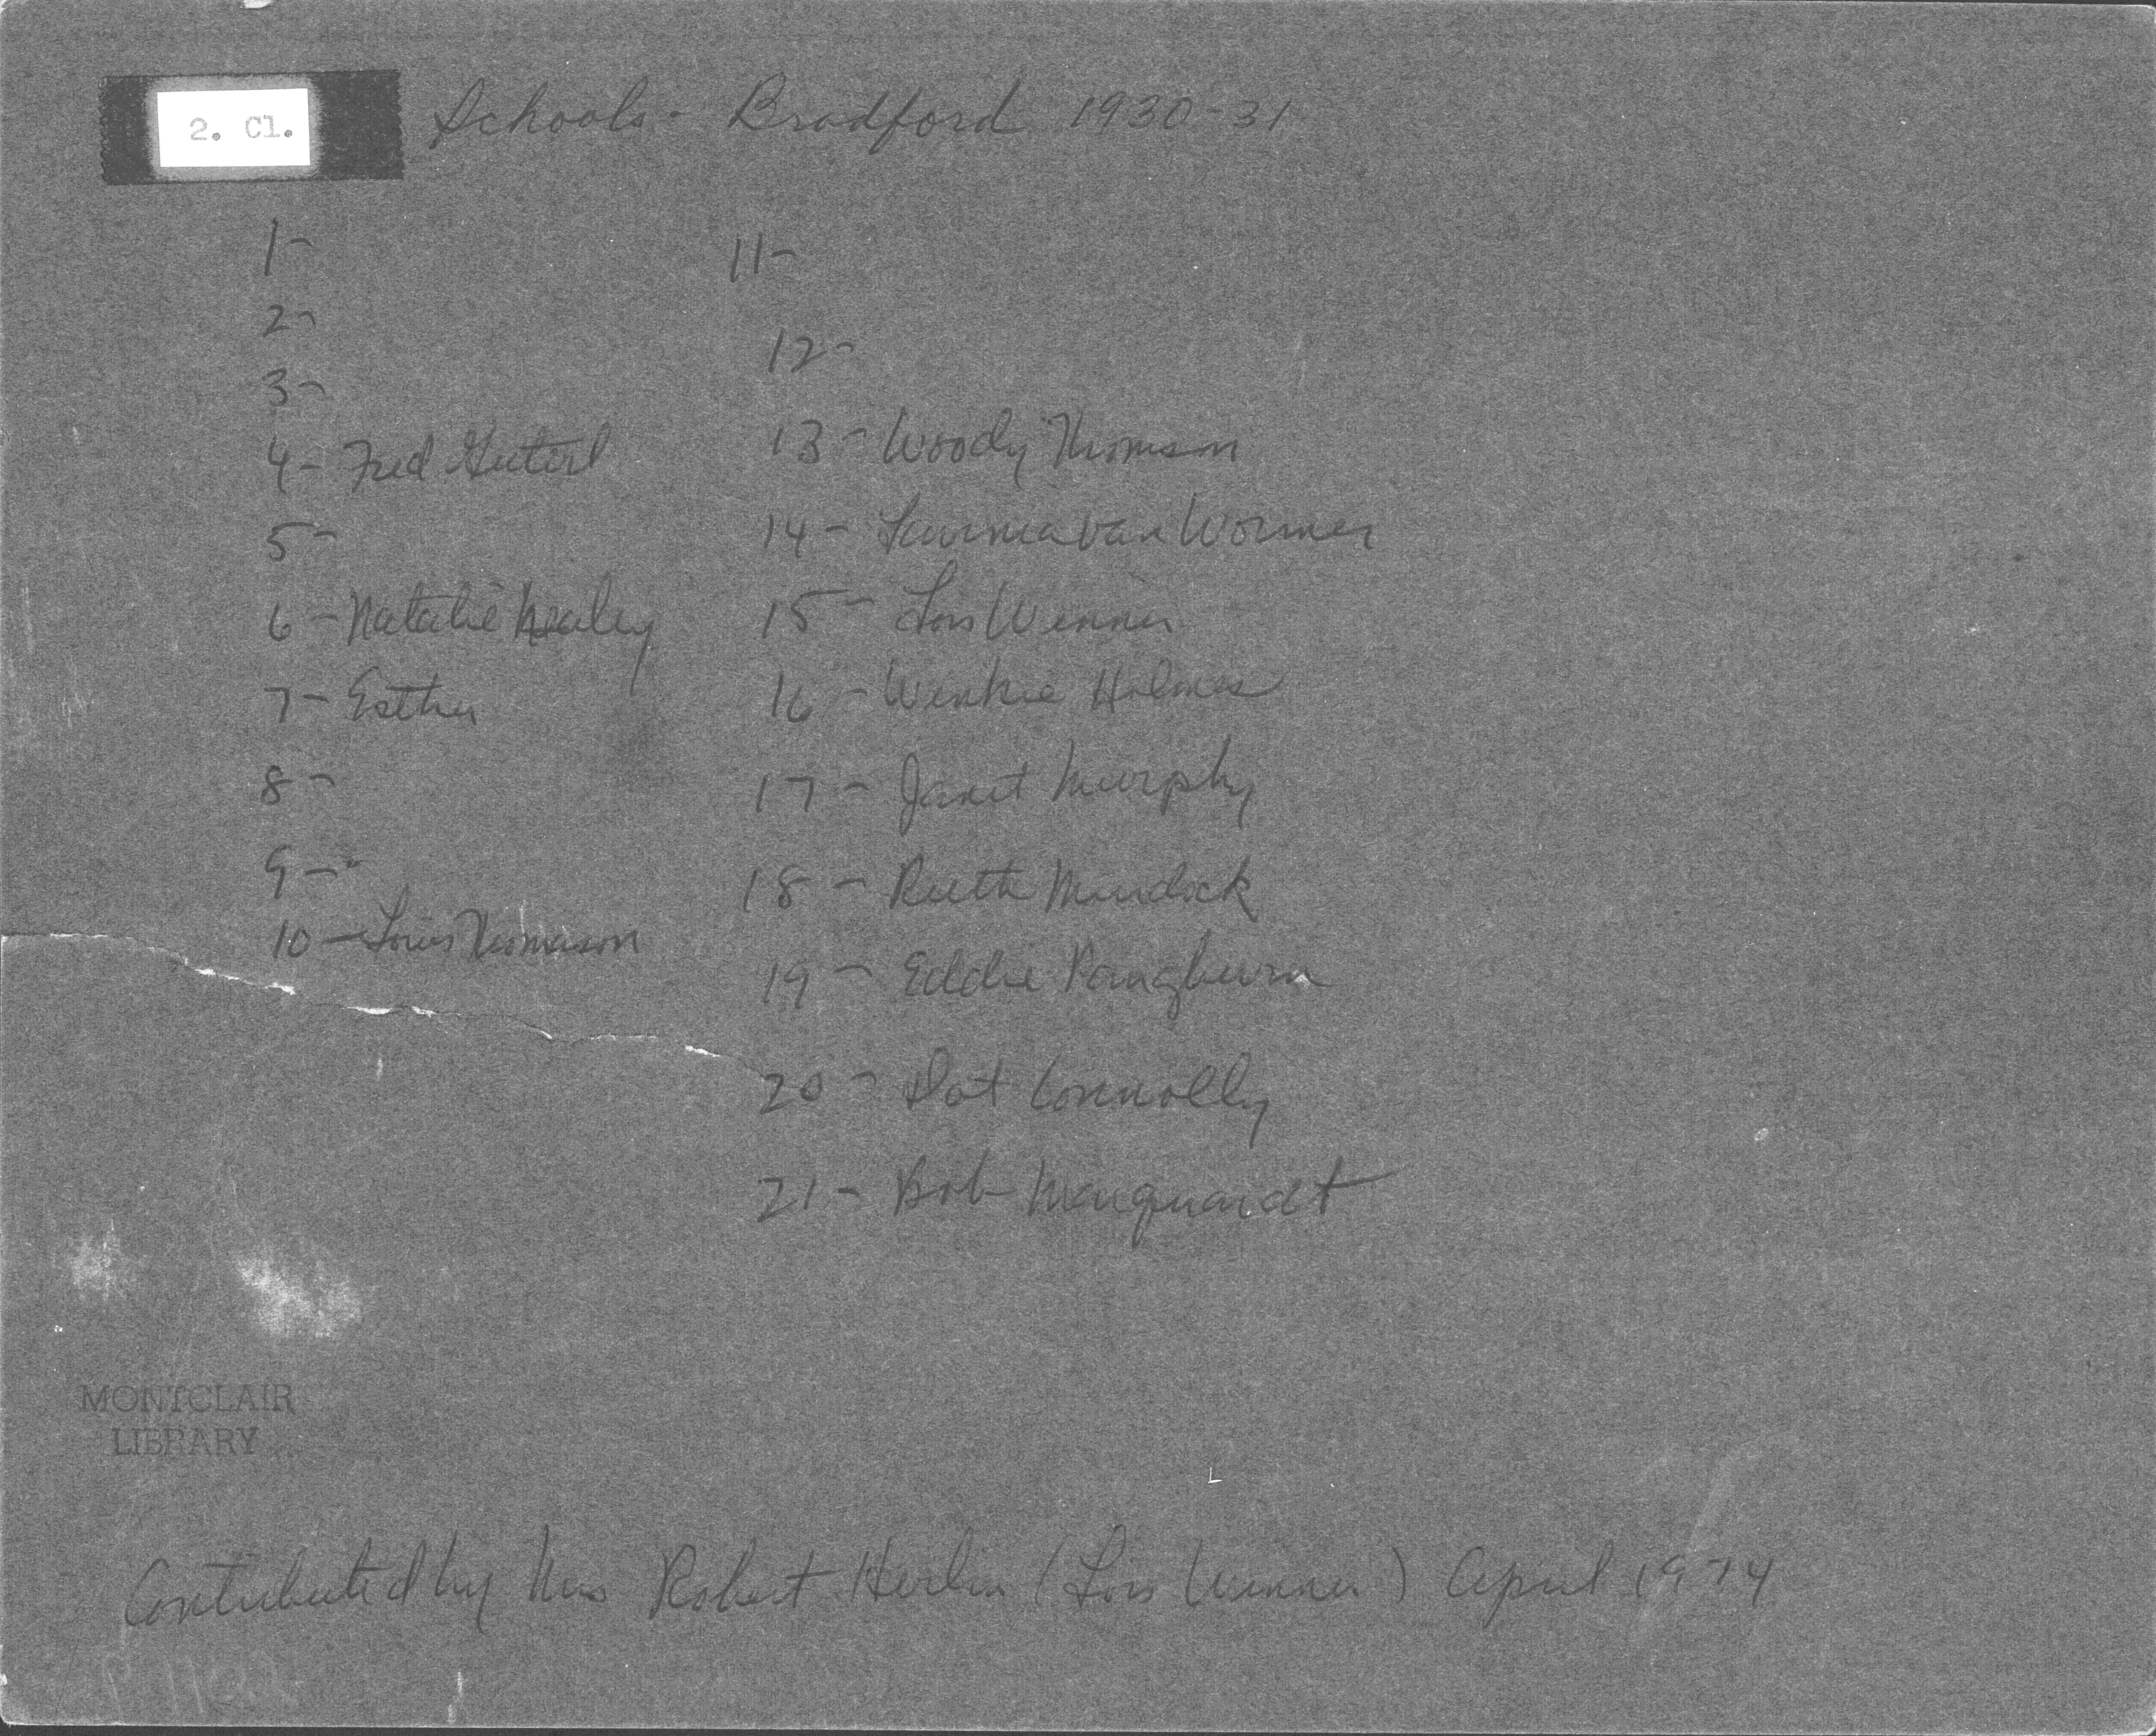 2. Cl.
Schools - Bradford 1930-31
1-
2-
3-
4- Fred Guterl
5-
6- Natalie Nealey
7- Esther
8-
9-
10- Louis Thomason
11-
12-
13- Woody Thomson
14- Van Wormer
15- Lois Winner
16- Winkie Holmes
17- Janet Murphy
18- Ruth Murdock
19- Eddie Pangburn
20- Dot Connolly
21- Bob Marquardt
MONTCLAIR
LIBRARY
Contributed by Mrs Robert (Lois Winner) April 1974